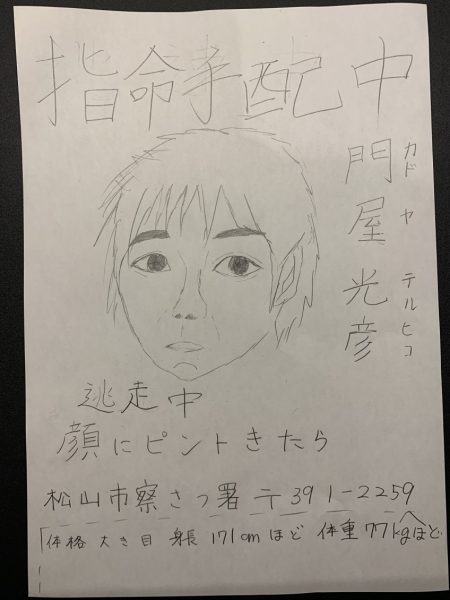 指命手配中
門屋光彦
カド ヤ テル ヒコ
逃走中
顔にピントきたら
松山市察さつ署 〒391-2259
「体格 大き目 身長 171cmほど 体重 77kgほど